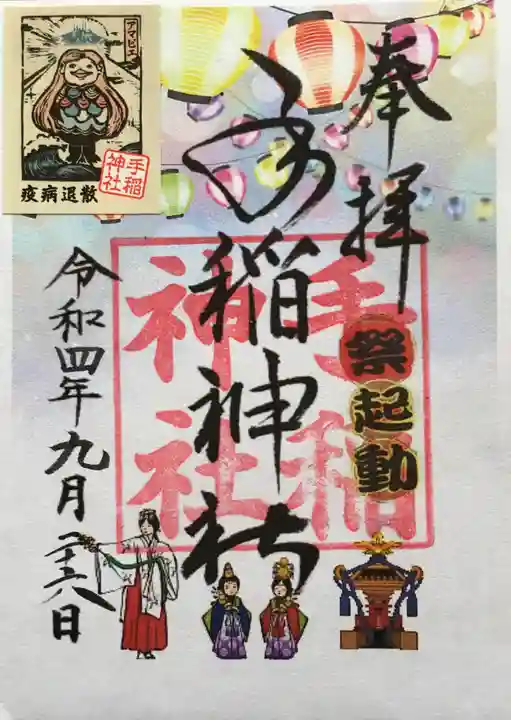 奉拝
祭起動
手稲神社
手稲神社
令和四年九月二十六日
アマビエ
手稲神社
疫病退散